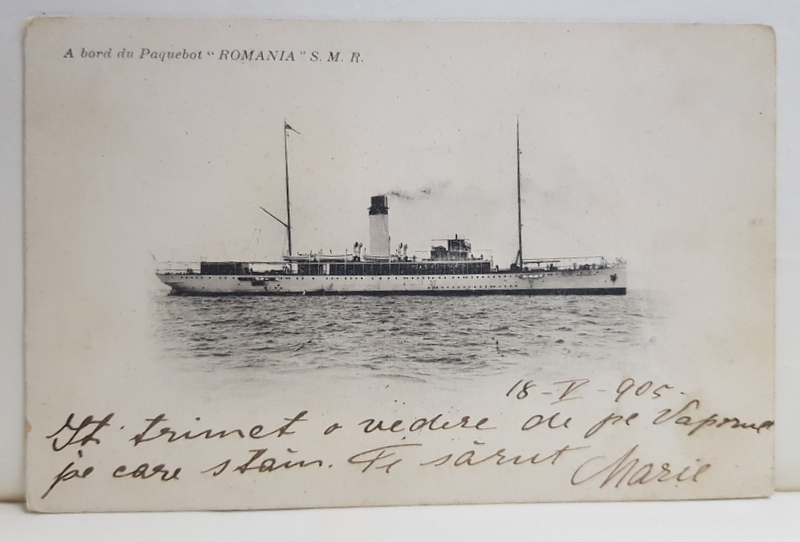 A bord du Paquebot "ROMANIA" S. M. R.
18-V-905.
Iți trimet o vedere de pe Vaporul
pe care stăm. Te sărut Marie